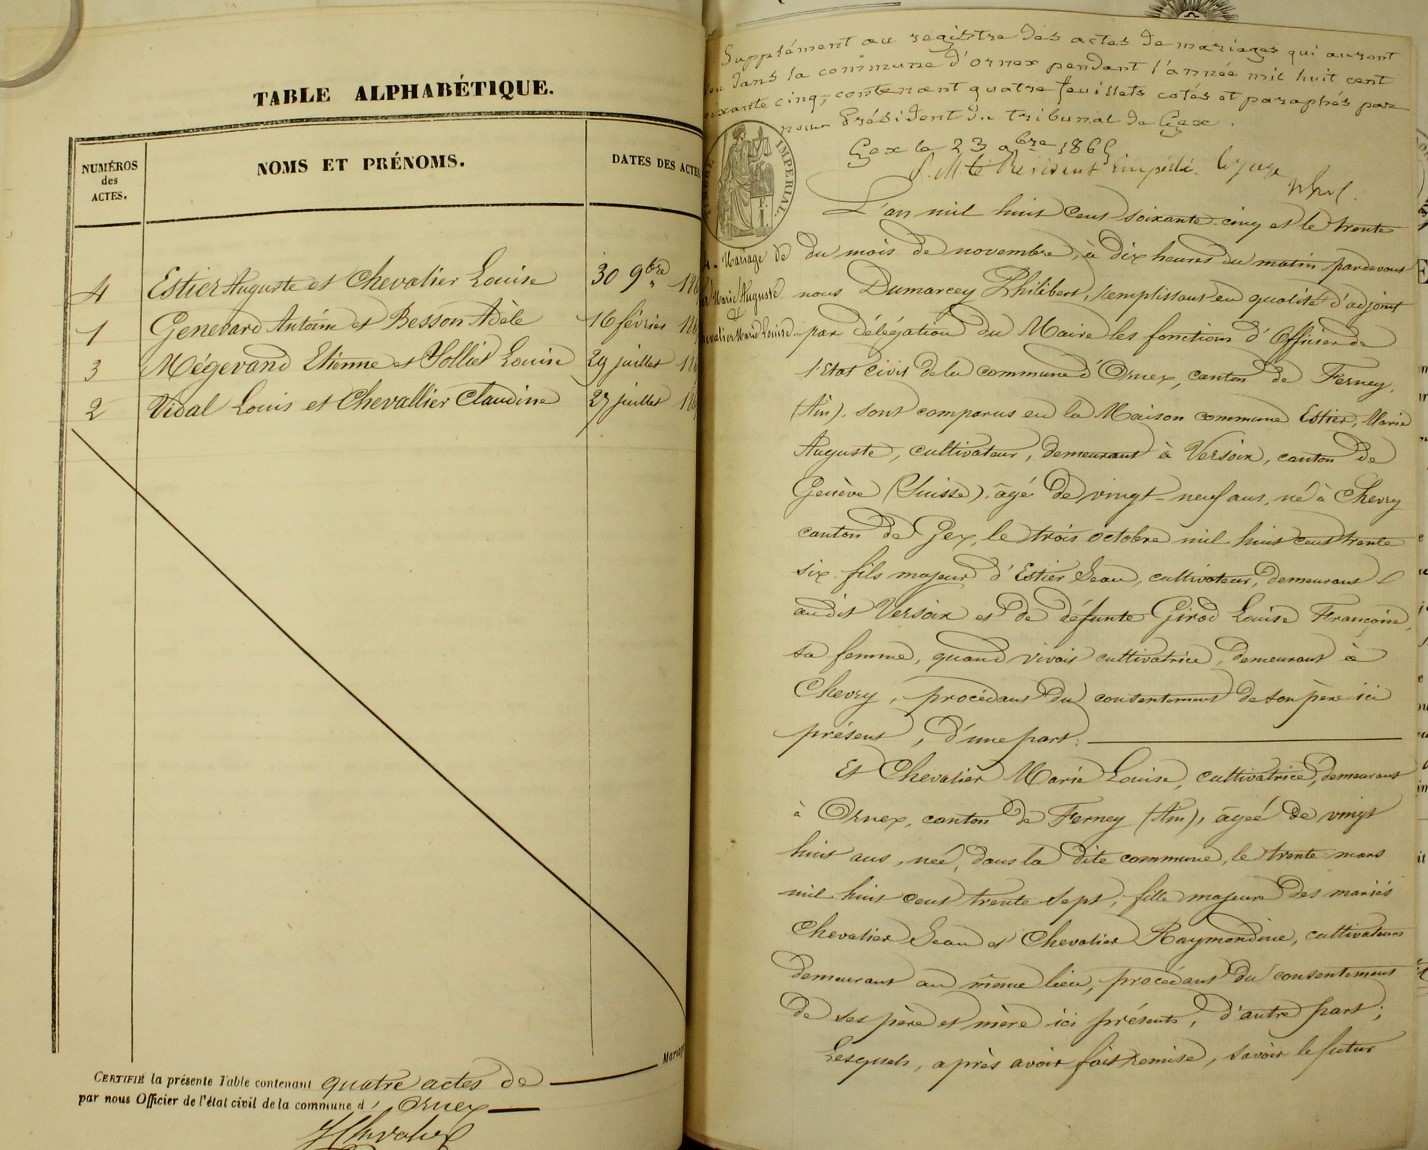 TABLE ALPHABÉTIQUE.
NUMÉROS
des
ACTES.
NOMS ET PRÉNOMS.
DATES DES ACTES
4 Estier Auguste et Chevalier Louise 30 9bre
1 Genevard Antoine et Besson Adèle 16 février
3 Mégevand Etienne et Louise 29 juillet
2 Vidal Louis et Chevallier Claudine 27 juillet
Mariage
CERTIFIÉ la présente Table contenant quatre actes de
par nous Officier de l'état civil de la commune d' Ornex
Chevalier
Supplément au registre des actes de mariages qui auront
lieu dans la commune d'Ornex pendant l'année mil huit cent
soixante cinq, contenant quatre feuillets cotés et paraphés par
nous Président du tribunal de Gex.
Gex le 23 9bre 1865
P. Mr le Président empêché. le juge
TIMBRE IMPÉRIAL.
4. Mariage de
Marie Auguste
&
Chevalier Marie Louise
L'an mil huit cent soixante-cinq et le trente
du mois de novembre, à dix heures du matin pardevant
nous Dumarcey Philibert, remplissant en qualité d'adjoint
par délégation du Maire les fonctions d'Officier de
l'Etat civil de la commune d'Ornex, canton de Ferney,
(Ain), sont comparus en la Maison commune Estier, Marie
Auguste, cultivateur, demeurant à Versoix, canton de
Genève (Suisse), âgé de vingt-neuf ans, né à Chevry
canton de Gex, le trois octobre mil huit cent trente
six, fils majeur d'Estier Jean, cultivateur, demeurant
audit Versoix et de défunte Girod Louise Françoise,
sa femme, quand vivait cultivatrice, demeurant à
Chevry, procédant du consentement de son père ici
présent, d'une part.
Et Chevalier Marie Louise, cultivatrice, demeurant
à Ornex, canton de Ferney (Ain), âgée de vingt
huit ans, née, dans la dite commune, le trente mars
mil huit cent trente sept, fille majeure des mariés
Chevalier Jean et Chevalier Raymondine, cultivateurs
demeurant au même lieu, procédant du consentement
de ses père et mère ici présents, d'autre part;
Lesquels, après avoir fait remise, savoir le futur